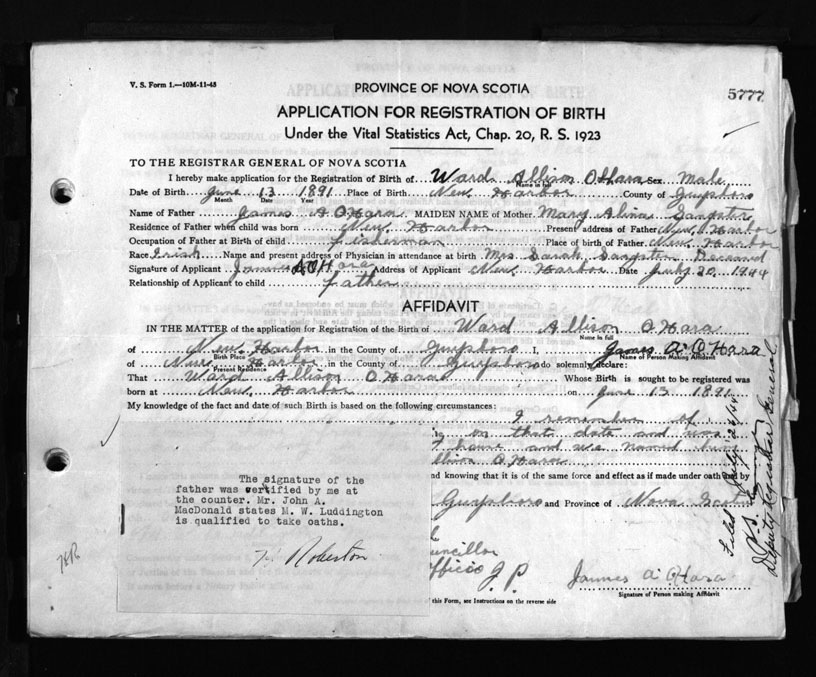 V. S. Form 1.—10M-11-43
PROVINCE OF NOVA SCOTIA
5777
APPLICATION FOR REGISTRATION OF BIRTH
Under the Vital Statistics Act, Chap. 20, R. S. 1923
TO THE REGISTRAR GENERAL OF NOVA SCOTIA
I hereby make application for the Registration of Birth of Ward Allison O'Hara Sex Male
Name in full
Date of Birth June 13 1891 Place of Birth New Harbor County of Guysboro
Month Date Year
Name of Father James A O'Hara MAIDEN NAME of Mother Mary Sangster
Residence of Father when child was born New Harbor Present address of Father New Harbor
Occupation of Father at Birth of child fisherman Place of birth of Father New Harbor
Race Irish Name and present address of Physician in attendance at birth Mrs. Sarah Sangster Deceased
Signature of Applicant James A O'Hara Address of Applicant New Harbor Date July 20, 1944
Relationship of Applicant to child father
AFFIDAVIT
IN THE MATTER of the application for Registration of the Birth of Ward Allison O'Hara
Name in full
of New Harbor in the County of Guysboro I, James A. O'Hara
Birth Place Name of Person Making Affidavit
of New Harbor in the County of Guysboro do solemnly declare:
Present Residence
That Ward Allison O'Hara Whose Birth is sought to be registered was
born at New Harbor on June 13 1891
My knowledge of the fact and date of such Birth is based on the following circumstances:
I remember of
on that date and was
house and was named
O'Hara
nd knowing that it is of the same force and effect as if made under oath and by
Guysboro and Province of Nova Scot
The signature of the
father was certified by me at
the counter. Mr. John A.
MacDonald states M. W. Luddington
is qualified to take oaths.
Roberton
uncillor
fficio J. P.
James A O'Hara
Signature of Person making Affidavit
this Form, see Instructions on the reverse side
Filed July 26/44
Deputy Registrar General